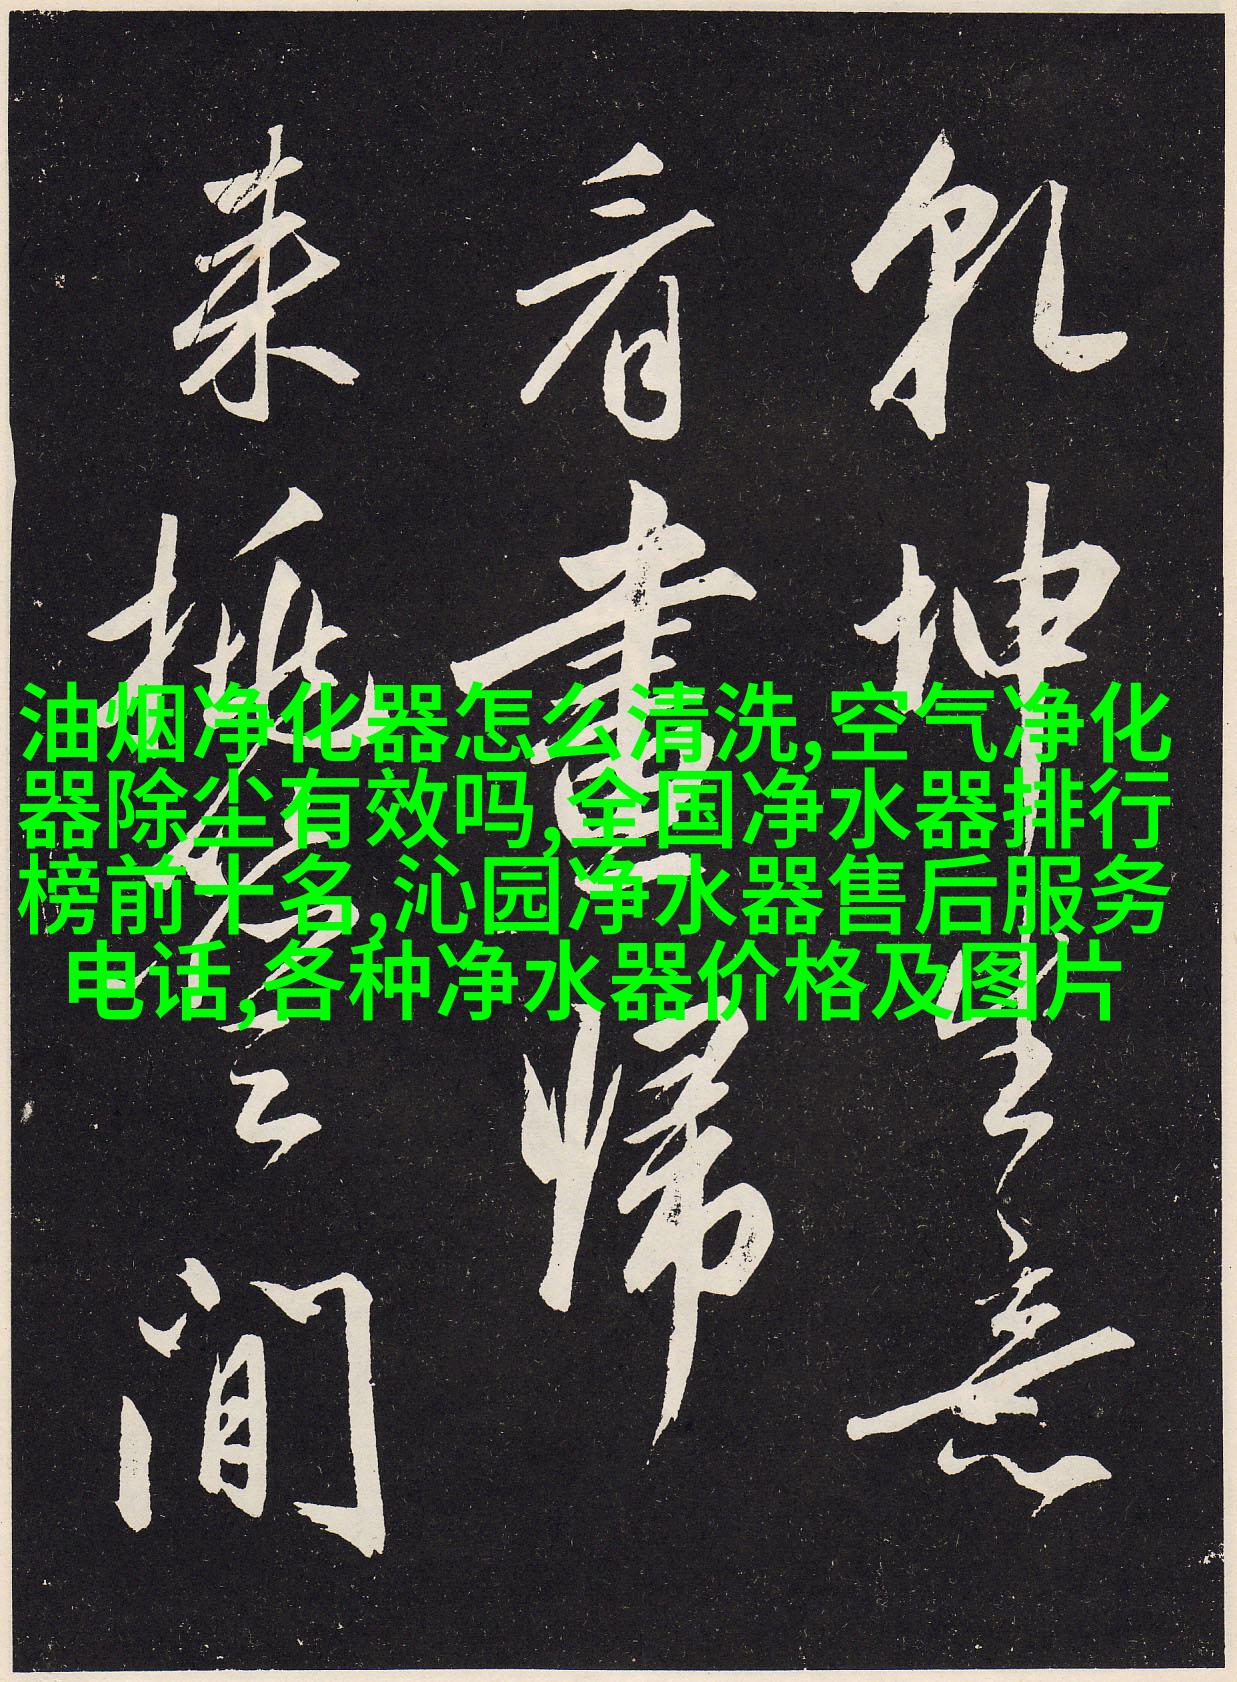 乾坤生意
看畫歸
来雲間
油烟净化器怎么清洗,空气净化
器除尘有效吗,全国净水器排行
榜前十名,沁园净水器售后服务
电话,各种净水器价格及图片